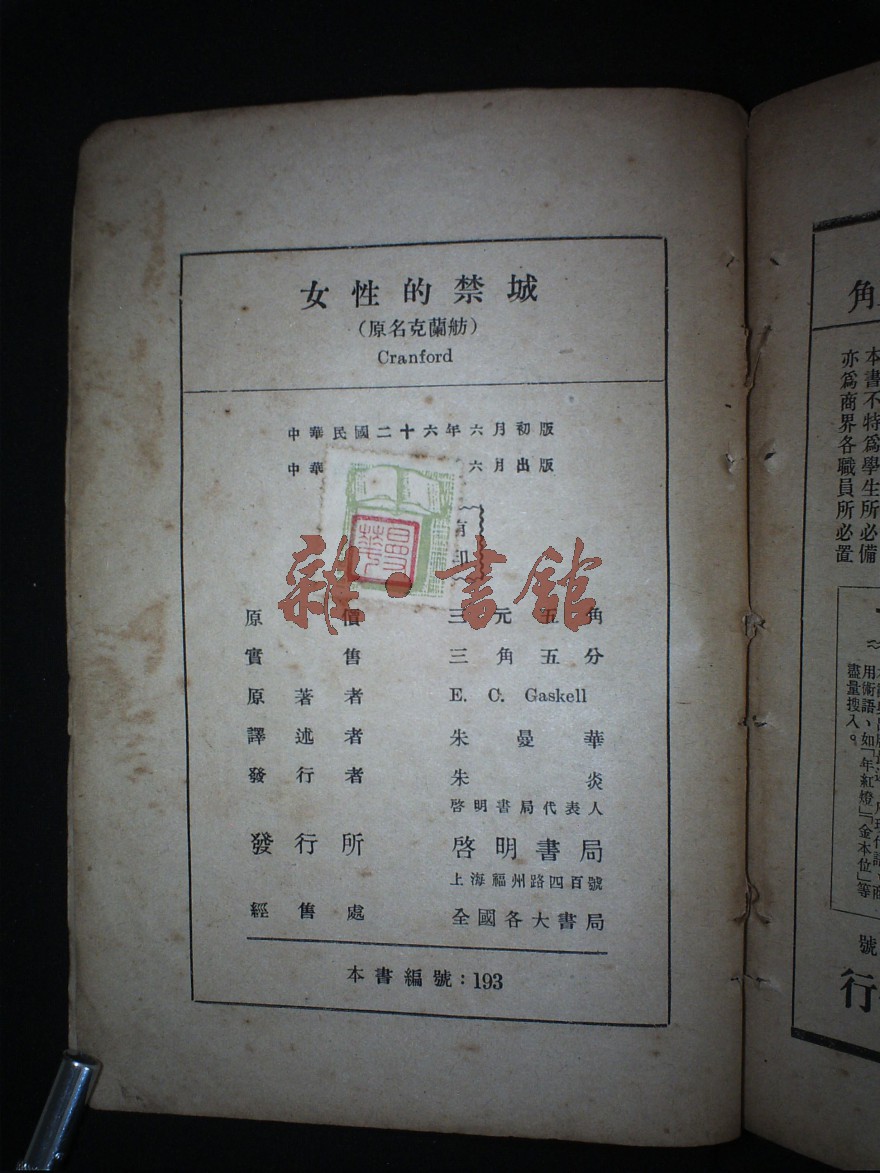 女性的禁城
（原名克蘭舫）
Cranford
中華民國二十六年六月初版
中華 六月出版
有
印
雜·書館
原價 三元五角
實售 三角五分
原著者 E. C. Gaskell
譯述者 朱曼華
發行者 朱炎
啓明書局代表人
發行所 啓明書局
上海福州路四百號
經售處 全國各大書局
本書編號：193
角
本書不特爲學生所必備
亦爲商界各職員所必置
用術語、如「年紅燈」「金本位」等
盡量搜入。
號
行